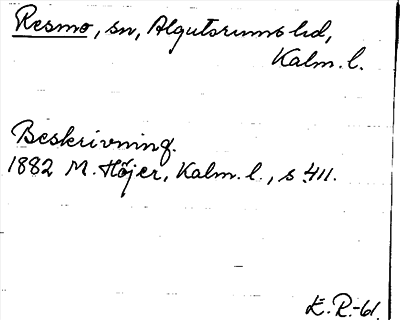 Resmo, sn, Algutsrums hd,
Kalm. l.
Beskrivning.
1882 M. Höjer, Kalm. l., s 411.
E. R.-61.